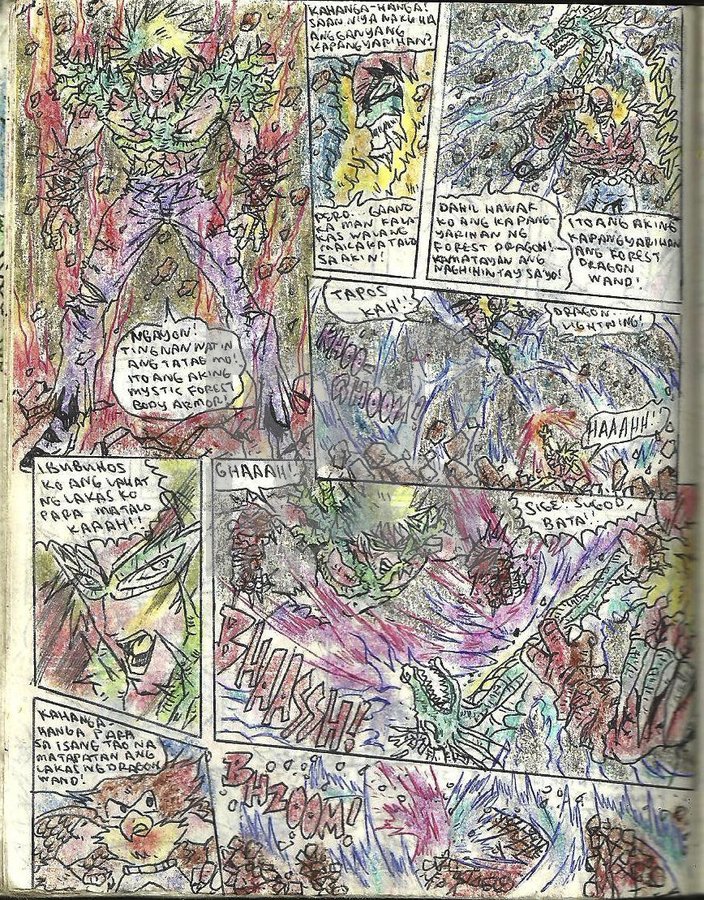 NGAYON!
TINGNAN NATIN
ANG TATAG MO!
ITO ANG AKING
MYSTIC FOREST
BODY ARMOR!
KAHANGA-HANGA!
SAAN NIYA NAKUHA
ANG GANYANG
KAPANGYARIHAN?
PERO... GAANO
KA MAN KALA-
KAS WALANG
MAKAKATALO
SAAKIN!
DAHIL HAWAK
KO ANG KAPANG-
YARIHAN NG
FOREST DRAGON!
KAMATAYAN ANG
NAGHIHINTAY SA'YO!
ITO ANG AKING
KAPANGYARIHAN
ANG FOREST
DRAGON
WAND!
TAPOS
KAH!!
DRAGON
LIGHTNING!
HAAAHH!
IBUBUHOS
KO ANG LAHAT
NG LAKAS KO
PARA MATALO
KAAAH!!
GHAAAH!!
SIGE. SUGOD
BATA!!
BHAASSH!
KAHANGA-
HANGA PARA
SA ISANG TAO NA
MATAPATAN ANG
LAKAS NG DRAGON
WAND!
BHZOOM!